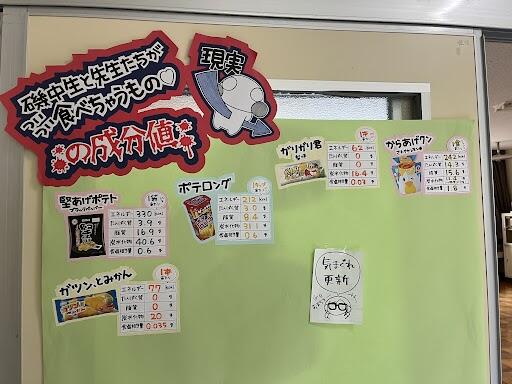 磯中生と先生たちが
ツイ食べちゃうもの♡
の成分値
現実
堅あげポテト
ブラックペッパー
1袋
エネルギー 330 kcal
たんぱく質 3.9 g
脂質 16.9 g
炭水化物 40.6 g
食塩相当量 0.6 g
ポテロング
エネルギー 212 kcal
たんぱく質 3.0 g
脂質 8.4 g
炭水化物 31.1 g
食塩相当量 0.6 g
ガリガリ君
1本
エネルギー 62 kcal
たんぱく質 0 g
脂質 0 g
炭水化物 16.4 g
食塩相当量 0.03 g
からあげクン
エネルギー 242 kcal
たんぱく質 14.3 g
脂質 15.6 g
炭水化物
食塩相当量 1.8 g
ガツン、とみかん
1本
エネルギー 77 kcal
たんぱく質 0 g
脂質 0 g
炭水化物 20 g
食塩相当量 0.035 g
気まぐれ
更新